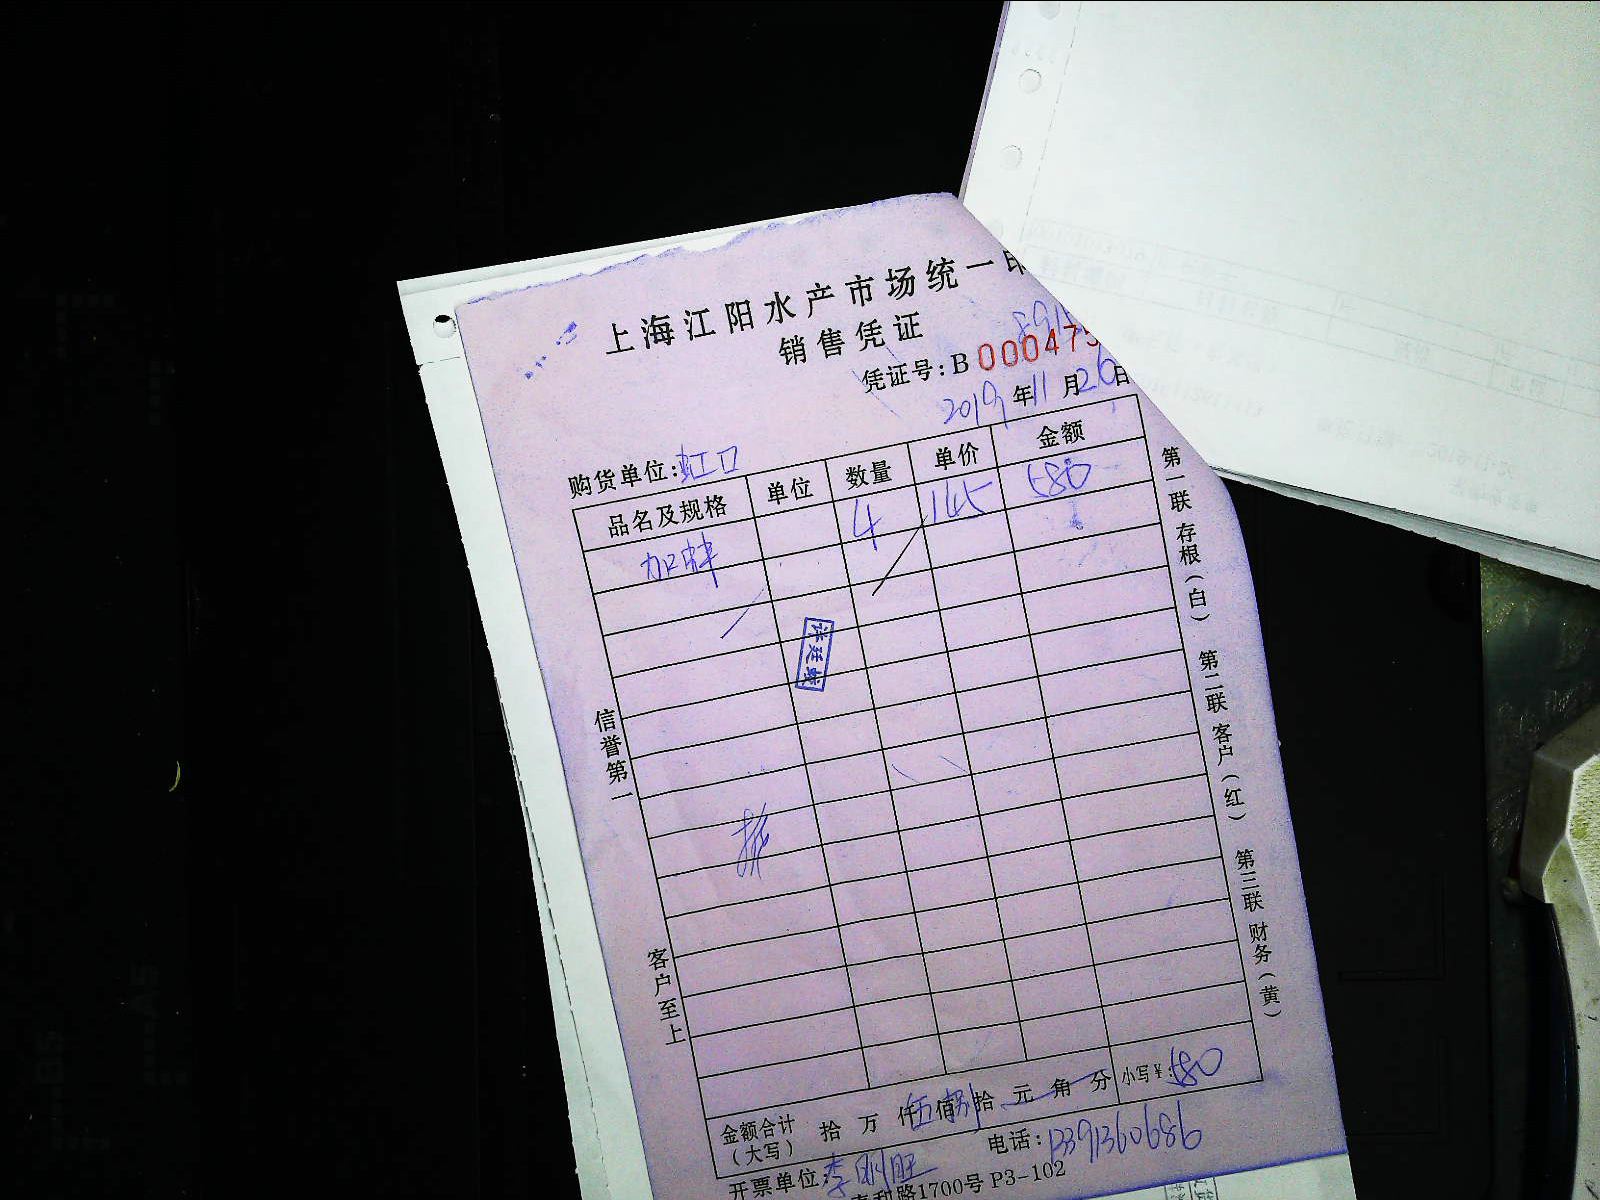 上海江阳水产市场统一印
销售凭证
凭证号:B 000475
2019年11月26日
购货单位:虹口
品名及规格 单位 数量 单价 金额
加蚌 4 145 580
信誉第一
客户至上
第一联存根(白) 第二联客户(红) 第三联财务(黄)
金额合计(大写) 拾 万 仟 伍佰捌拾 元 角 分 小写¥:580
开票单位:李刚旺 电话:13391360686
泰和路1700号 P3-102